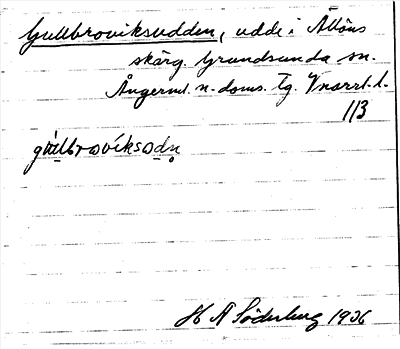 Gullbroviksudden, udde i Alöns
skärg. Grundsunda sn.
Ångerml. n. doms. tg. Vnorrl. l.
113
gu̍llbrωvíksωdn̥
H A Söderberg 1936